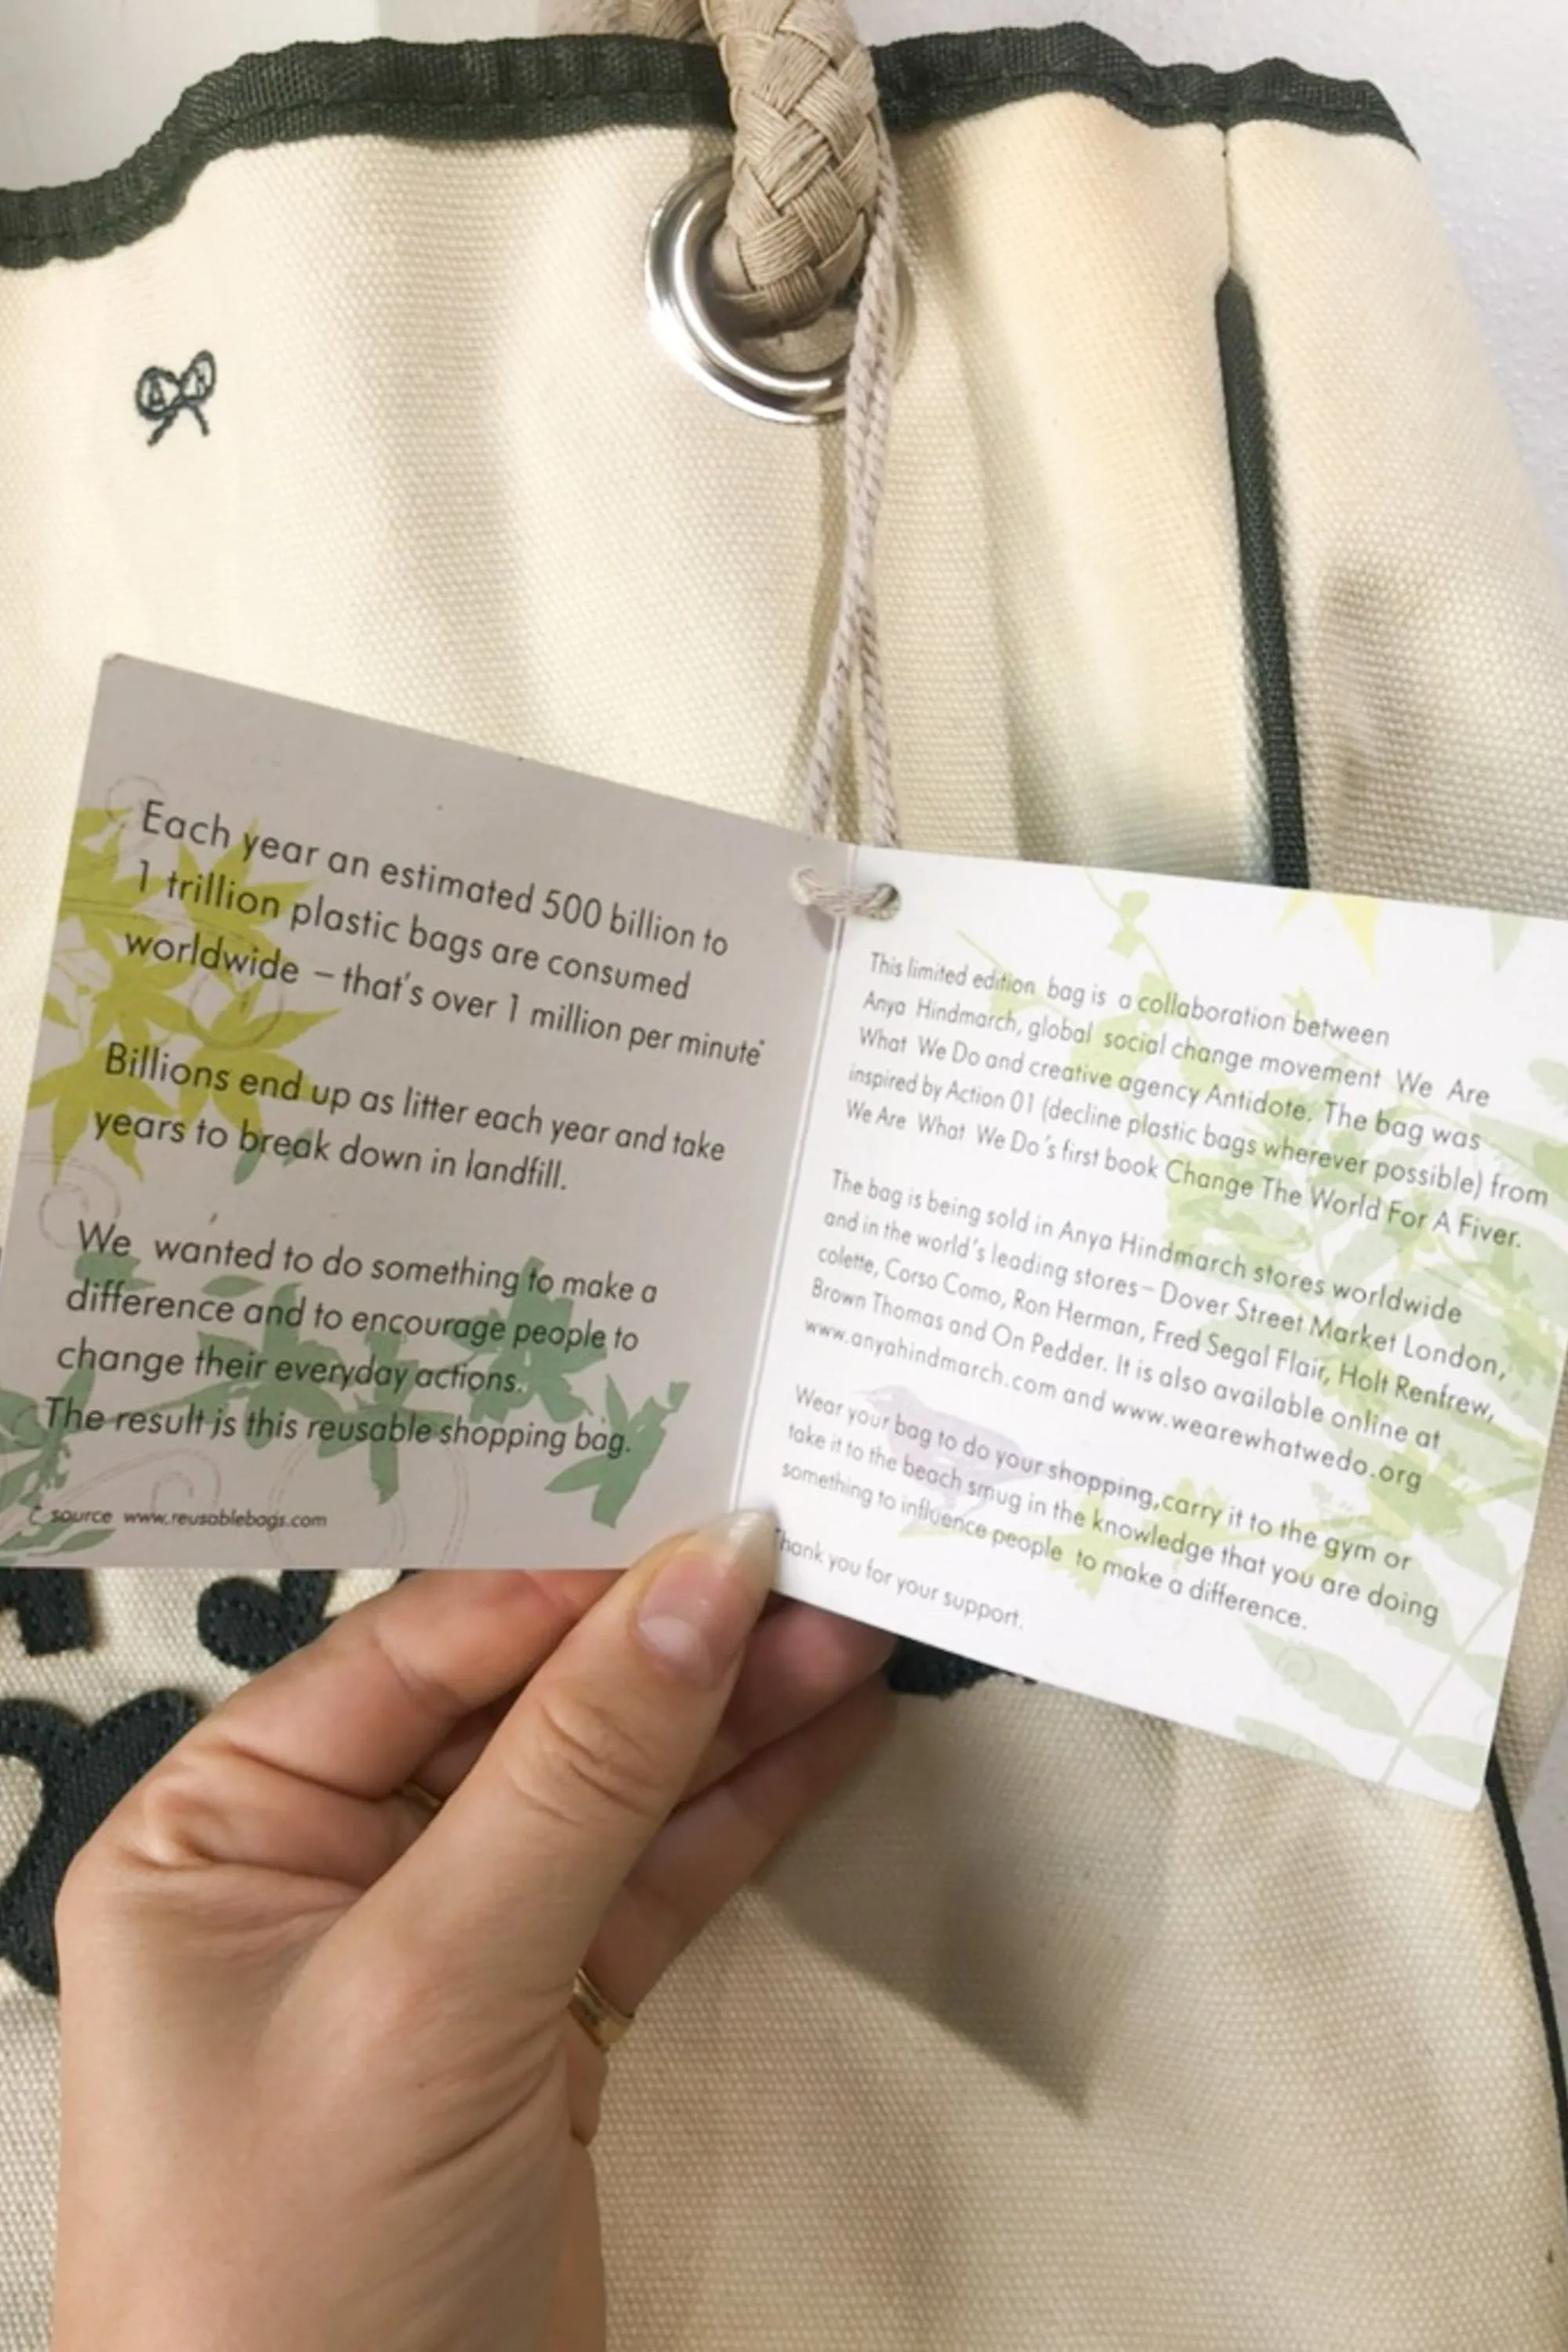 Each year an estimated 500 billion to
1 trillion plastic bags are consumed
worldwide – that's over 1 million per minute*
Billions end up as litter each year and take
years to break down in landfill.
We wanted to do something to make a
difference and to encourage people to
change their everyday actions.
The result is this reusable shopping bag.
source www.reusablebags.com
This limited edition bag is a collaboration between
Anya Hindmarch, global social change movement We Are
What We Do and creative agency Antidote. The bag was
inspired by Action 01 (decline plastic bags wherever possible) from
We Are What We Do's first book Change The World For A Fiver.
The bag is being sold in Anya Hindmarch stores worldwide
and in the world's leading stores – Dover Street Market London,
colette, Corso Como, Ron Herman, Fred Segal Flair, Holt Renfrew,
Brown Thomas and On Pedder. It is also available online at
www.anyahindmarch.com and www.wearewhatwedo.org
Wear your bag to do your shopping, carry it to the gym or
take it to the beach smug in the knowledge that you are doing
something to influence people to make a difference.
Thank you for your support.